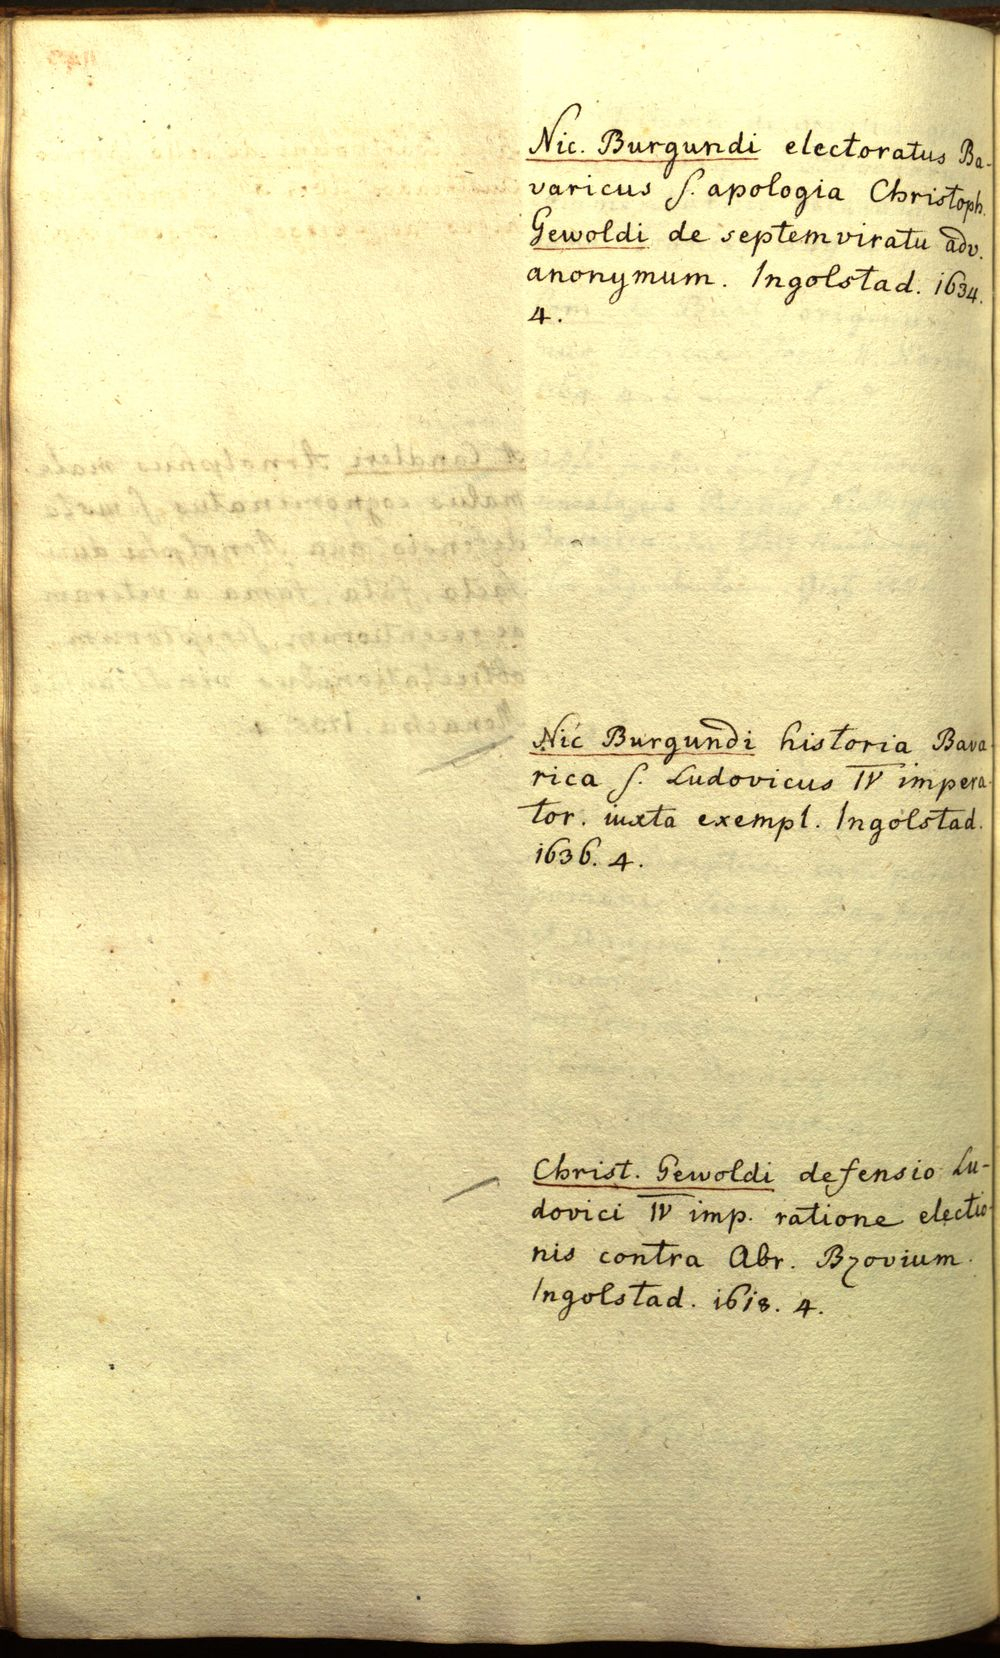 Nic. Burgundi electoratus Ba-
varicus s. apologia Christoph.
Gewoldi de septemviratu adv.
anonymum. Ingolstad. 1634.
4.
Nic Burgundi historia Bava-
rica s. Ludovicus IV impera-
tor. iuxta exempl. Ingolstad.
1636. 4.
Christ. Gewoldi defensio Lu-
dovici IV imp. ratione electio-
nis contra Abr. Bzovium.
Ingolstad. 1618. 4.